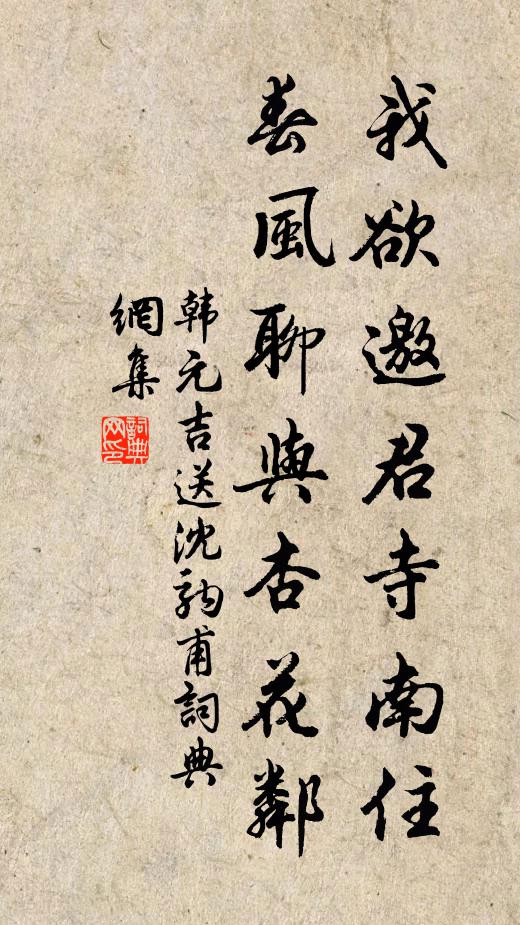 我欲邀君寺南住
春風聊與杏花鄰
韩元吉送沈千駒甫詞典
網集
詞典
网印